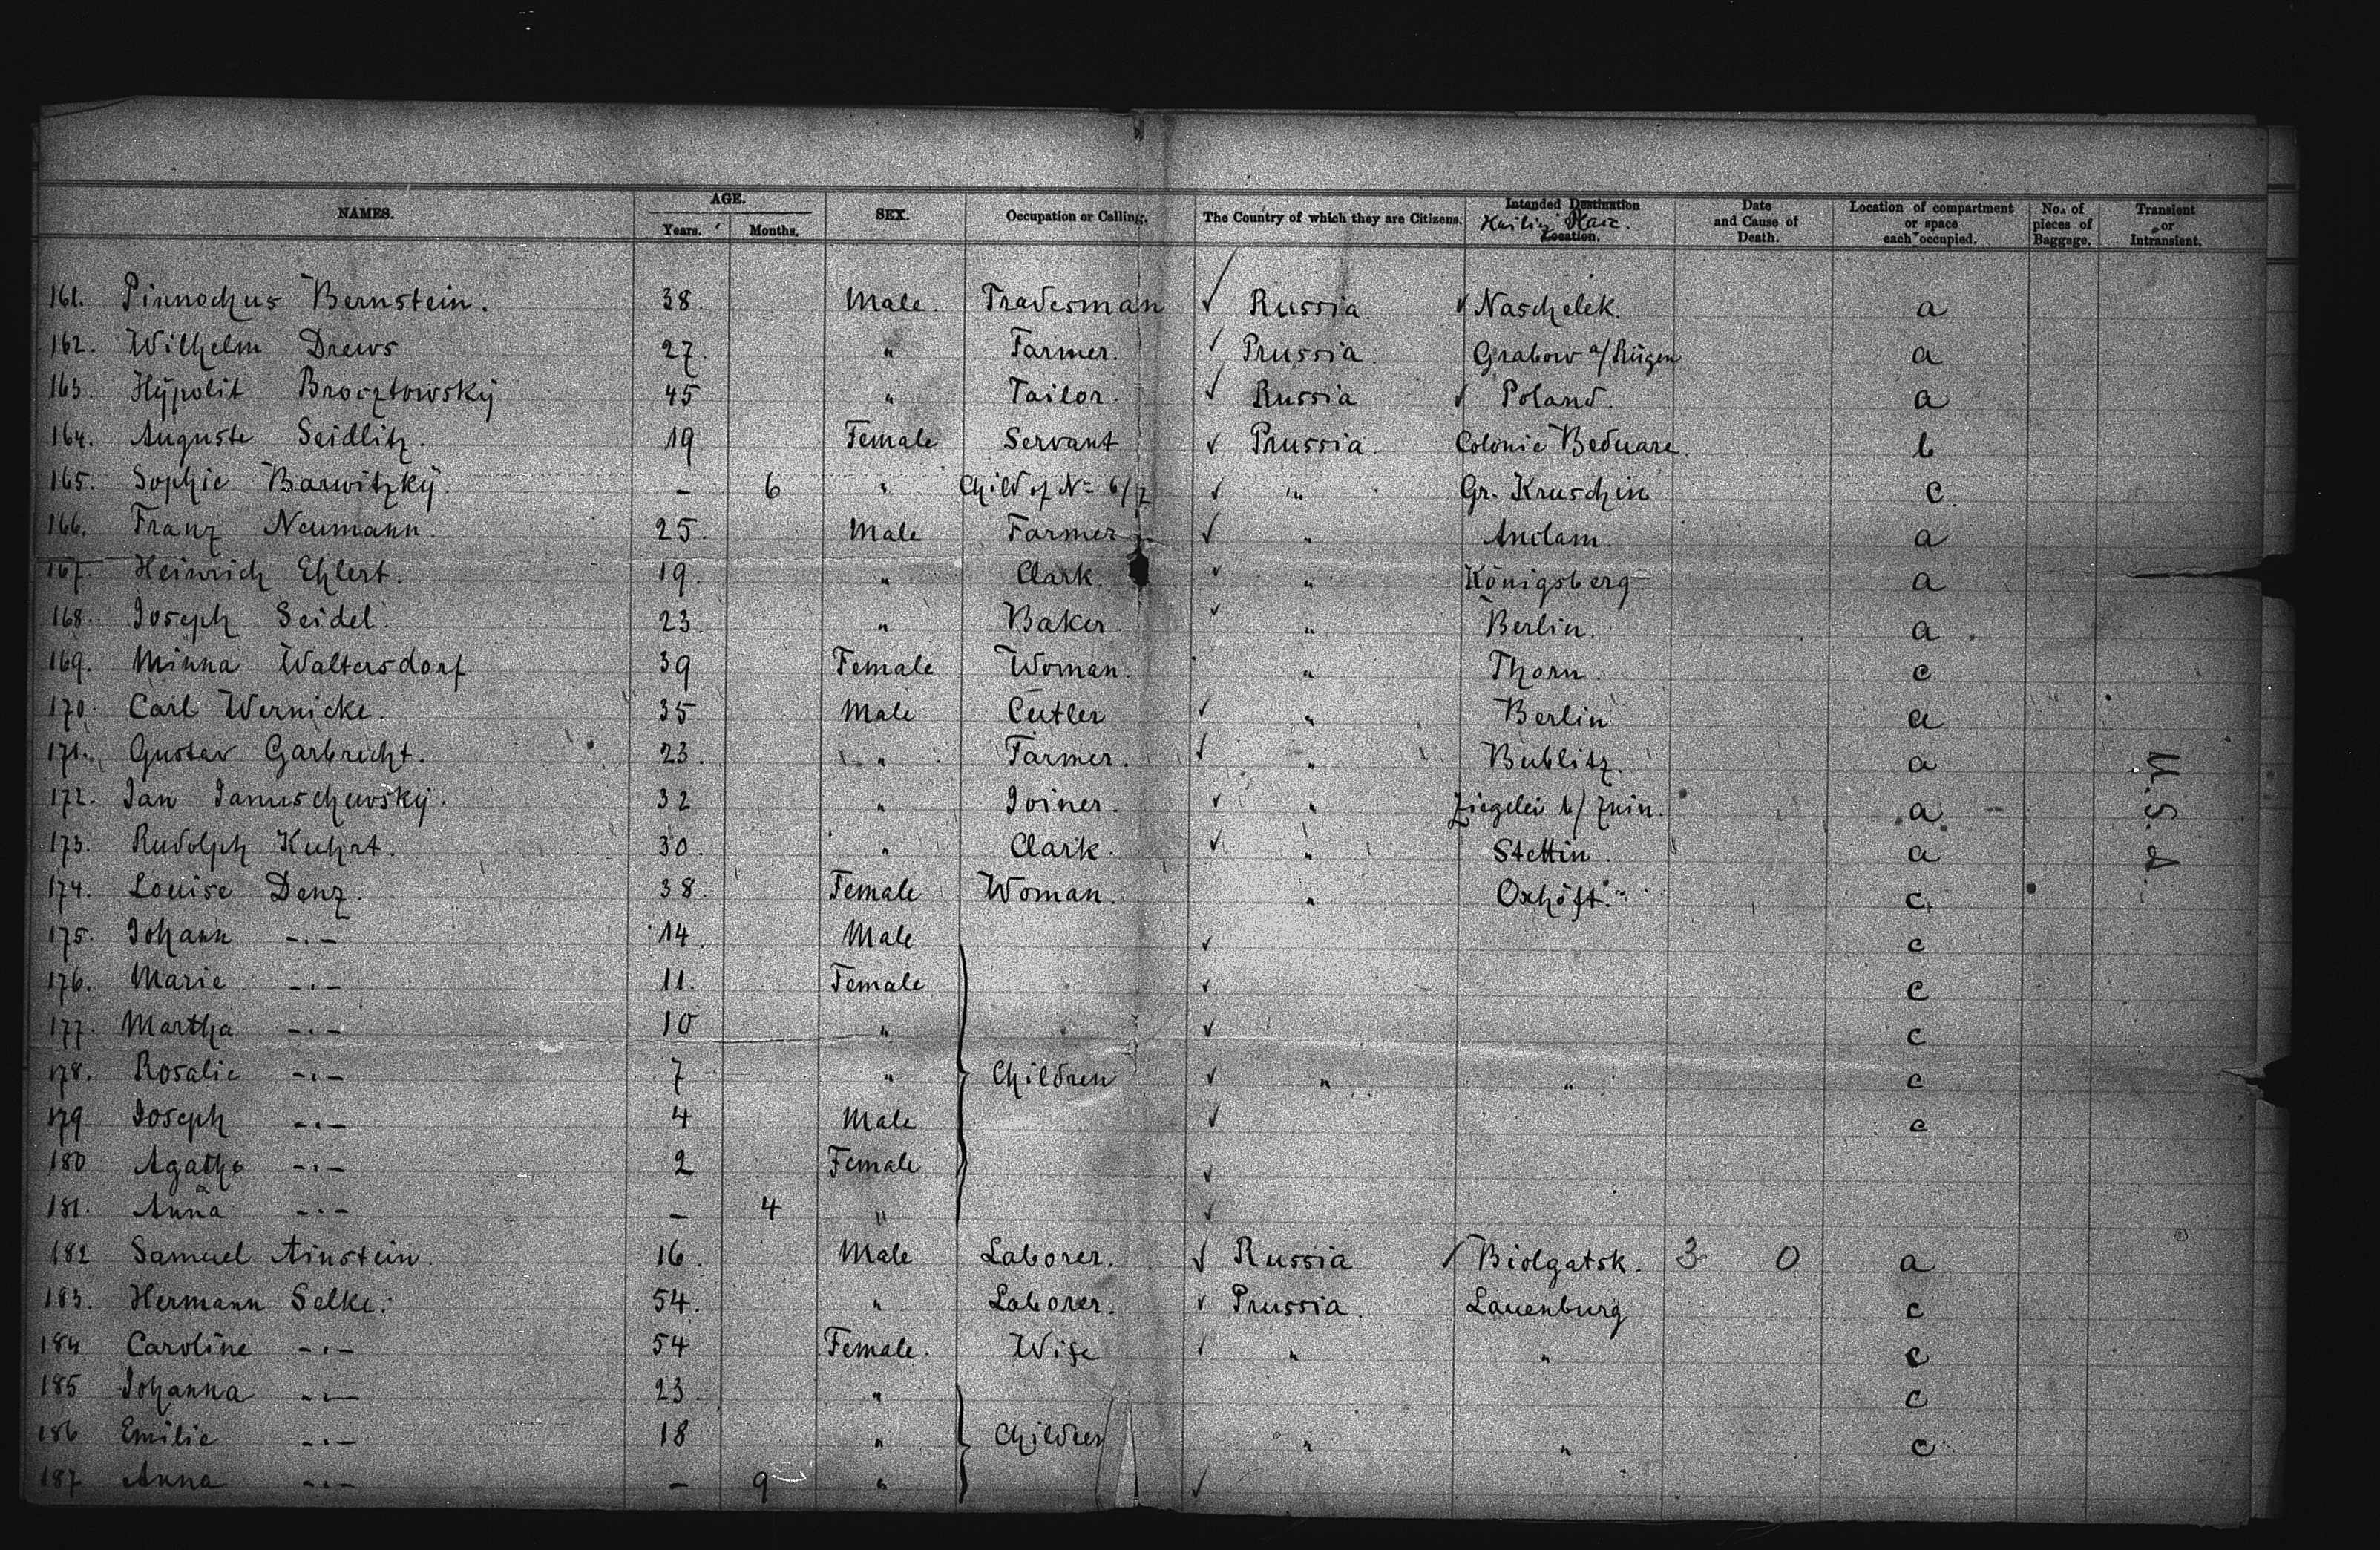 NAMES. AGE. Years. Months. SEX. Occupation or Calling. The Country of which they are Citizens. Intended Destination Location. Date and Cause of Death. Location of compartment or space each occupied. No. of pieces of Baggage. Transient or Intransient.
161. Pinnochus Bernstein. 38. Male. Tradesman Russia. Naschelek. a
162. Wilhelm Drews 27. " Farmer. Prussia. Grabow a/Rügen a
163. Hÿpolit Brocztowskÿ 45 " Tailor. Russia Poland. a
164. Auguste Seidlitz. 19 Female Servant Prussia. Colonie Beduare. b
165. Sophie Barwitzkÿ. – 6 " Child of No 6/7 " Gr. Kruschin c
166. Franz Neumann. 25. Male Farmer " Anclam. a
167. Heinrich Ehlert. 19. " Clark. " Königsberg a
168. Joseph Seidel. 23. " Baker. " Berlin. a
169. Minna Waltersdorf 39 Female Woman. " Thorn. c
170. Carl Wernicke. 35 Male Cutler " Berlin a
171. Gustav Garbrecht. 23. " Farmer. " Bublitz. a
172. Jan Januschewskÿ. 32 " Joiner. " Ziegelei b/ Znin. a
173. Rudolph Kuhrt. 30. " Clark. " Stettin. a
174. Louise Denz. 38. Female Woman. " Oxhöft. c.
175. Johann -.- 14. Male c
176. Marie -.- 11. Female c
177. Martha -.- 10 " c
178. Rosalie -.- 7 " Children " " c
179 Joseph -.- 4 Male c
180 Agathe -.- 2 Female
181. Anna -.- – 4 "
182 Samuel Ainstein. 16. Male Laborer. Russia Biolgatsk. 3 0 a
183. Hermann Selke. 54. " Laborer. Prussia. Lauenburg c
184 Caroline -.- 54 Female. Wife " " c
185 Johanna -.- 23. " c
186 Emilie -.- 18 " Children " " c
187 Anna -.- – 9 "
U. S. A.